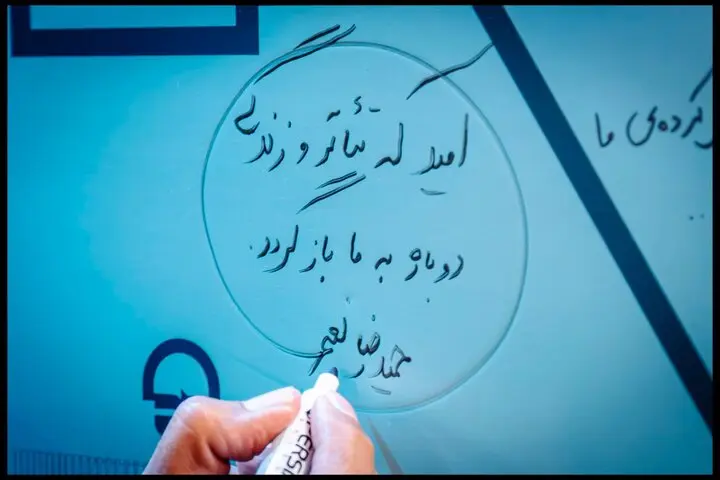 امید که تئاتر و زندگی
دوباره به ما باز گردد.
حمیدرضا نعیمی
کرده‌ی ما